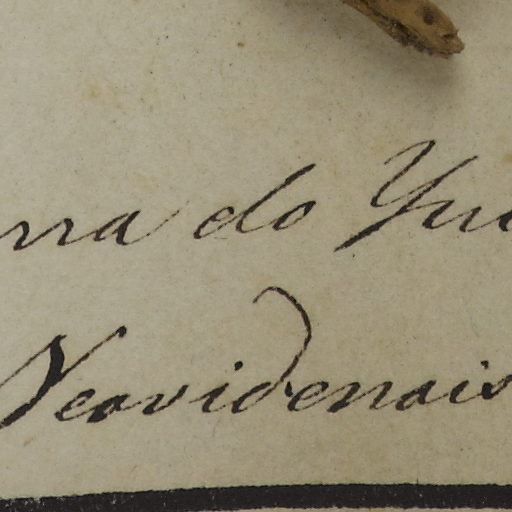 rra do Yu
Neovidenais